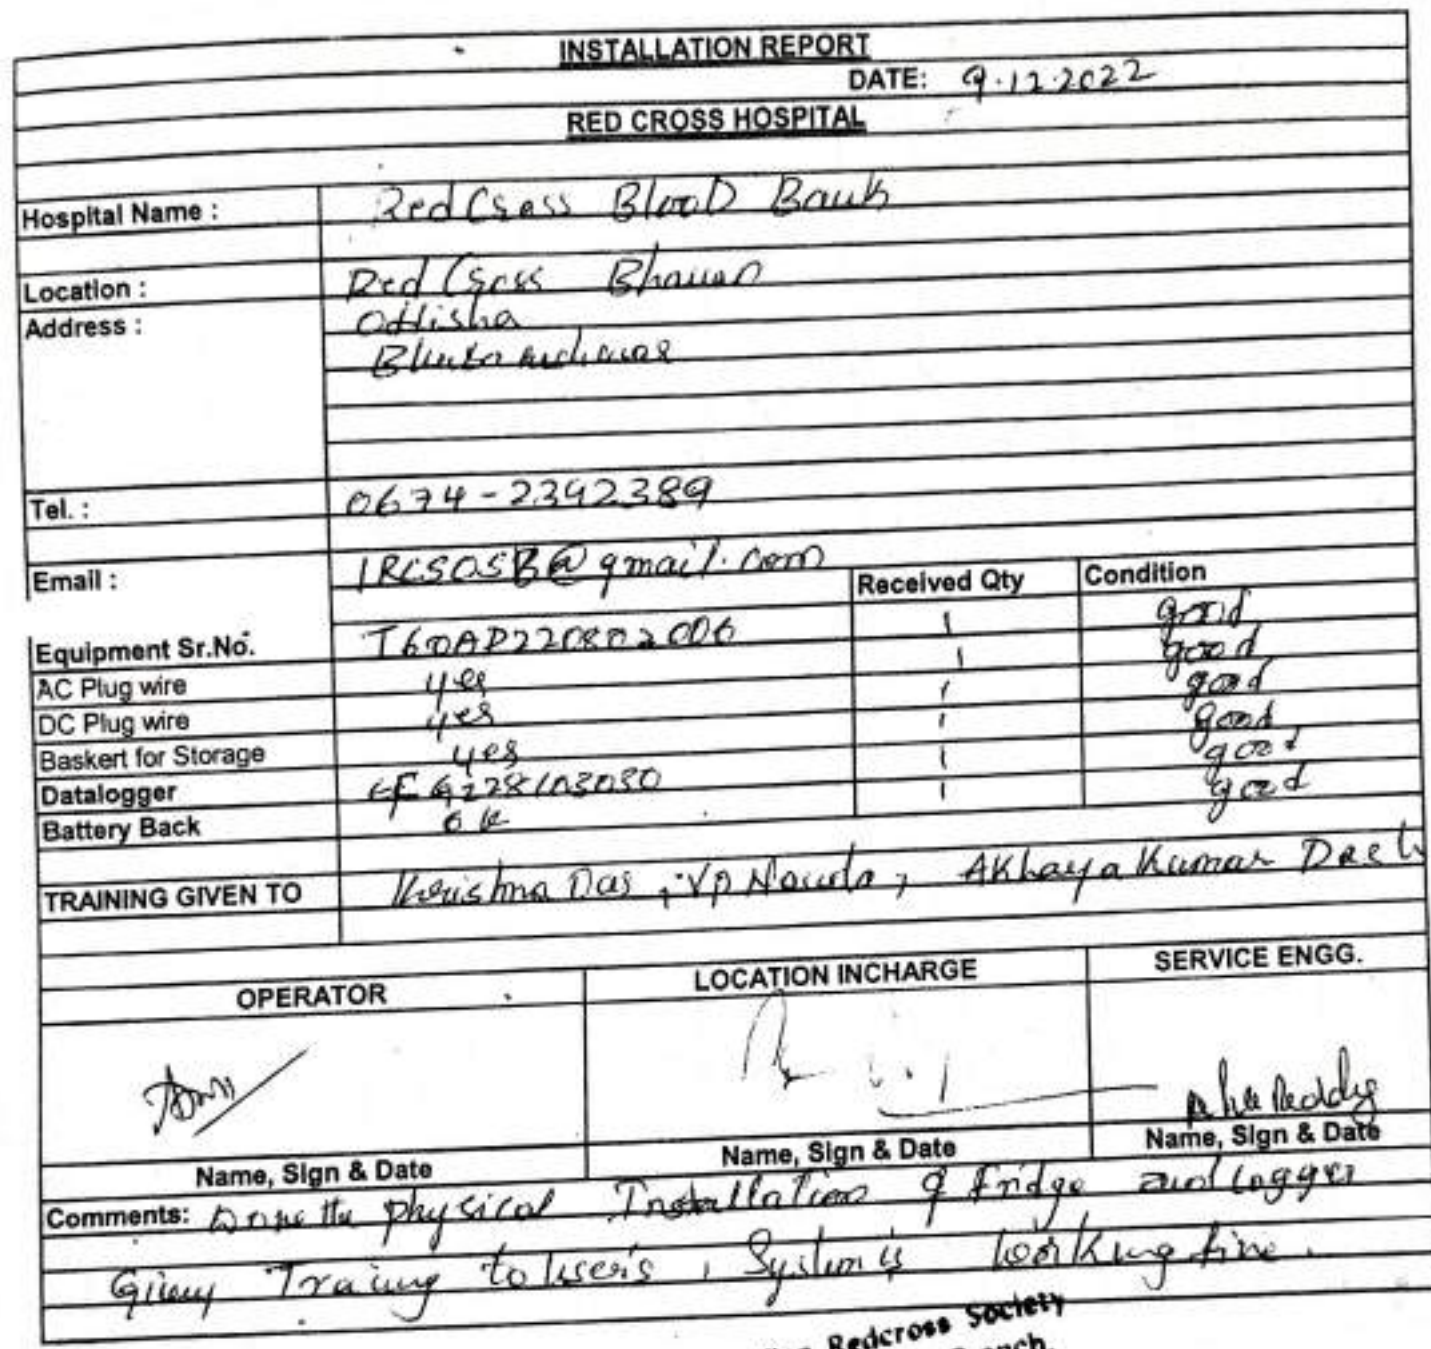 INSTALLATION REPORT
DATE: 9.12.2022
RED CROSS HOSPITAL
Hospital Name : Red Cross Blood Bank
Location : Red Cross Bhawan
Address : Odisha
Bhubaneshwar
Tel. : 0674-2392389
Email : IRCSOSB@gmail.com
Received Qty Condition
Equipment Sr.No. T60AP220802006 1 good
AC Plug wire yes 1 good
DC Plug wire yes 1 good
Baskert for Storage yes 1 good
Datalogger 1 good
Battery Back ok 1 good
TRAINING GIVEN TO Krishna Das, Akhaya Kumar Dash
OPERATOR LOCATION INCHARGE SERVICE ENGG.
Reddy
Name, Sign & Date Name, Sign & Date Name, Sign & Date
Comments: Done the physical Installation of fridge and logger
Training to users, System is working fine.
Redcross Society